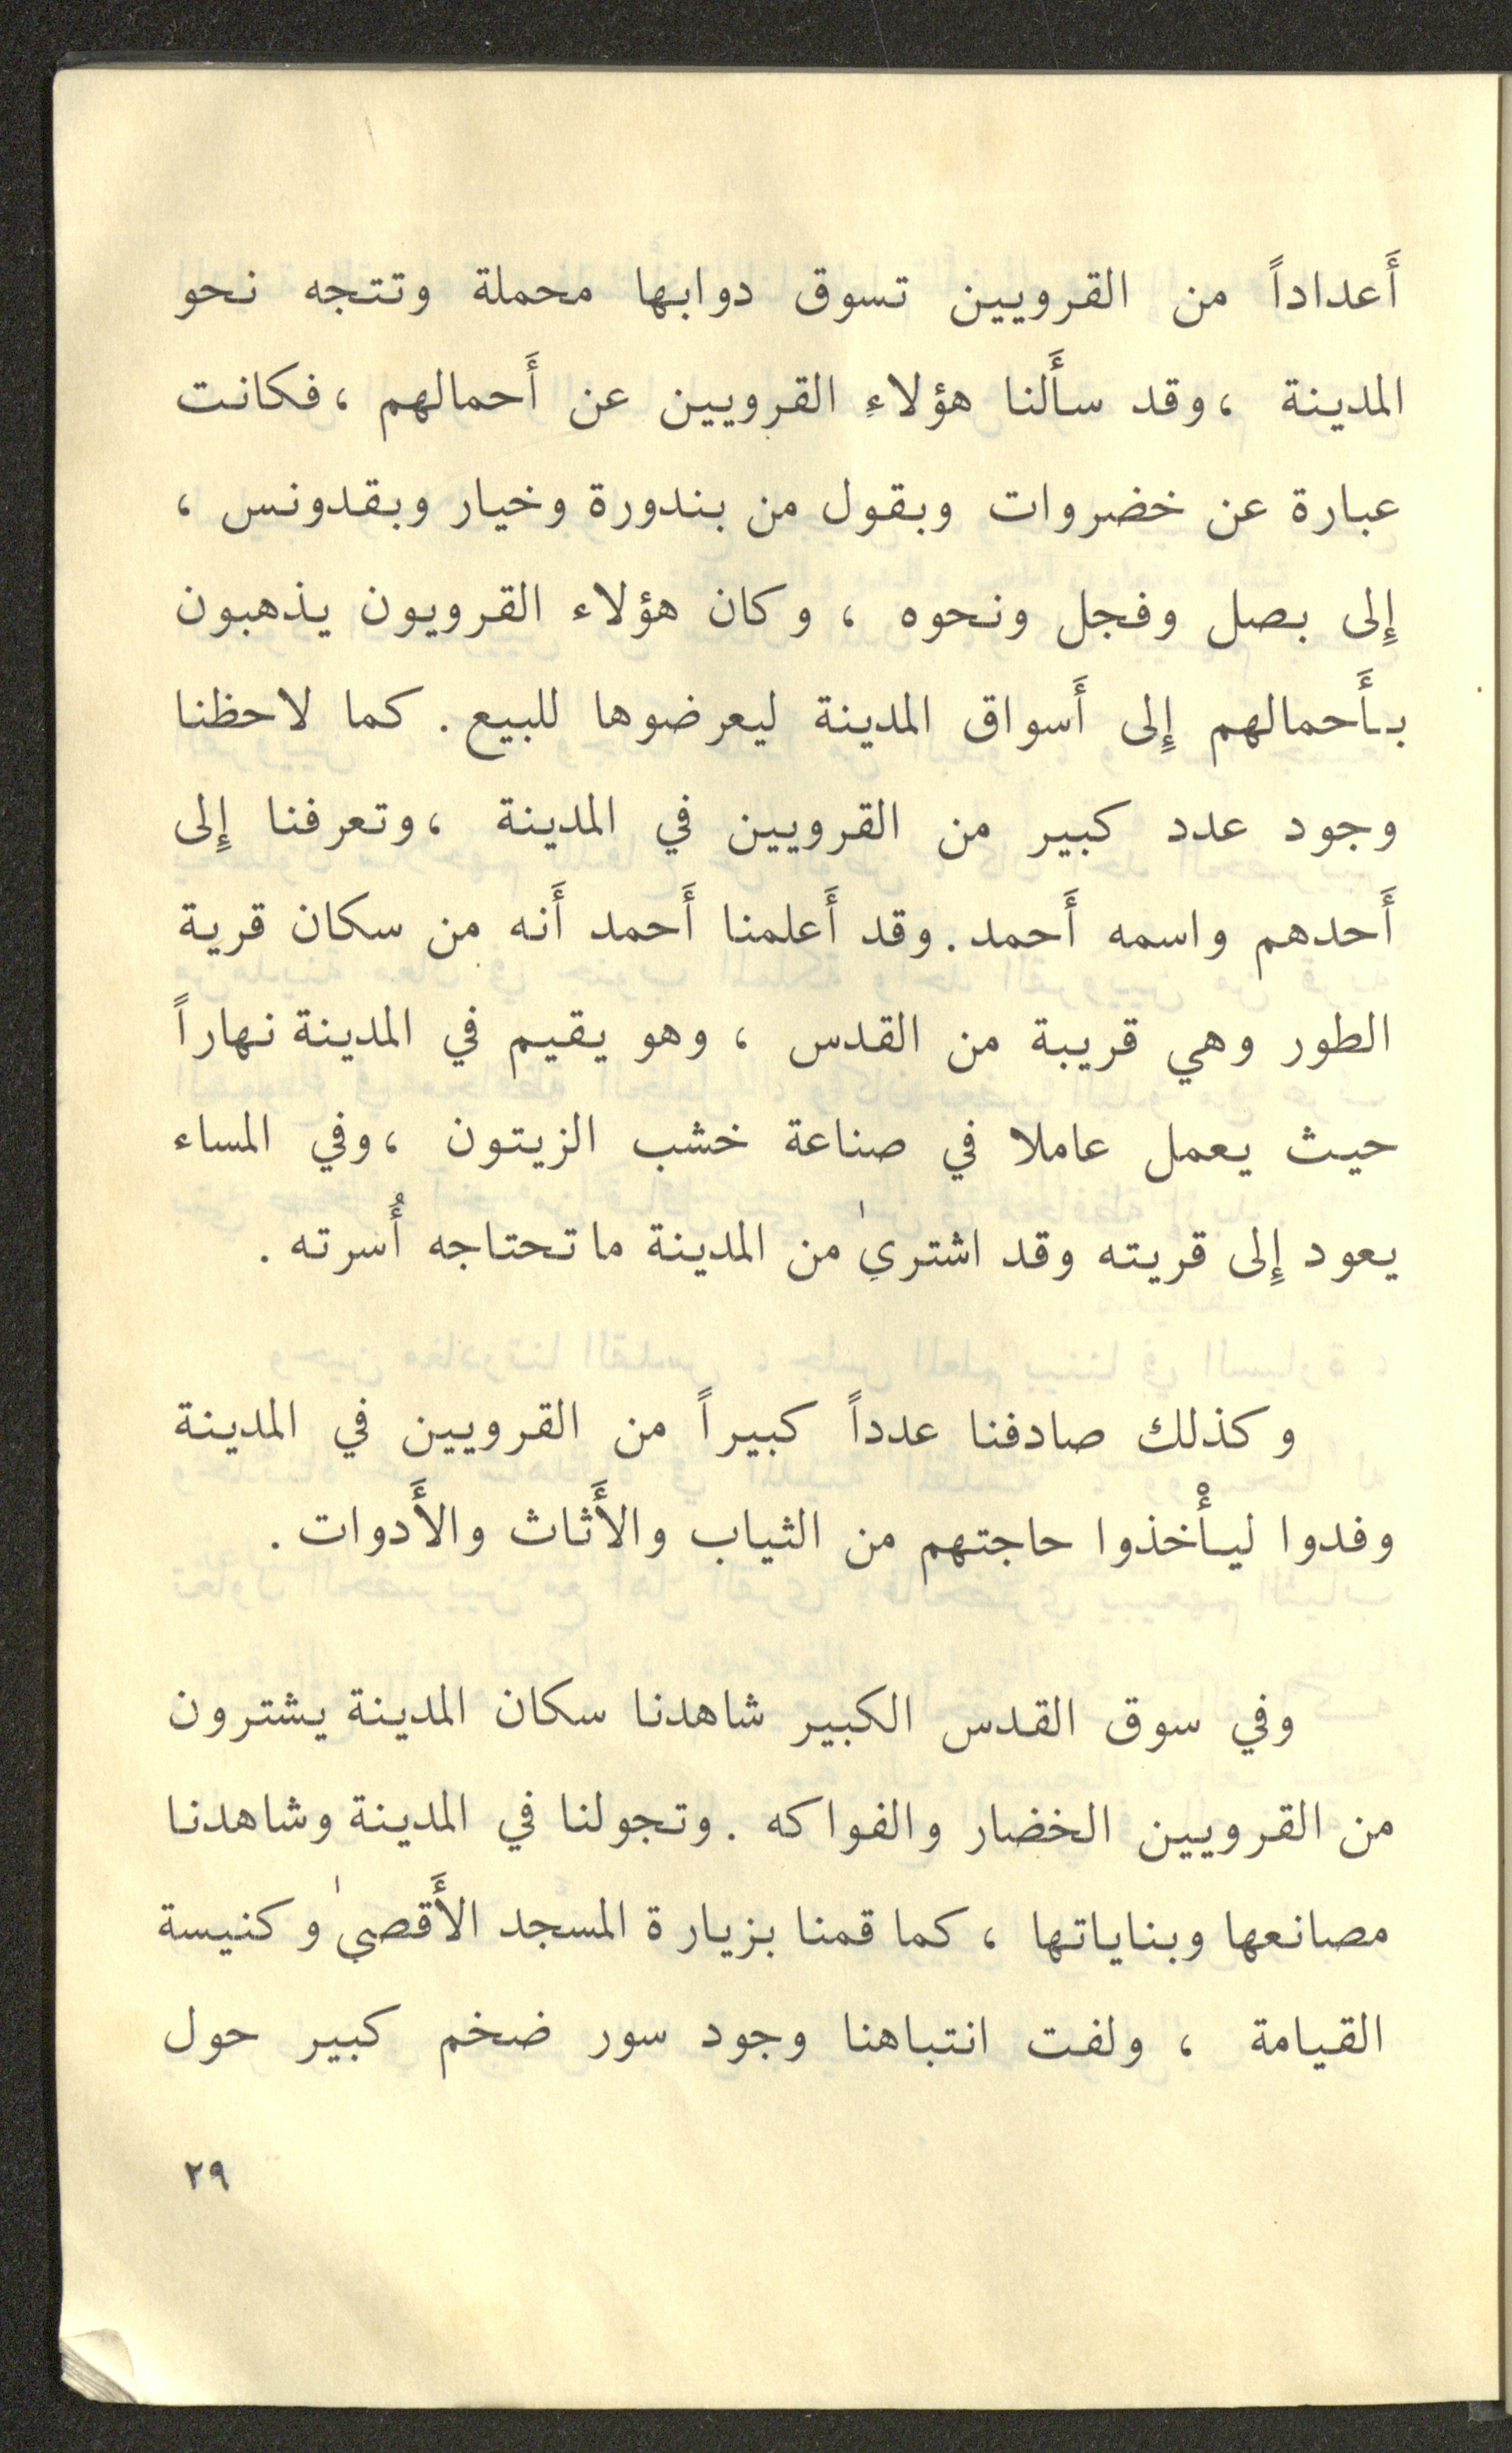 أَعداداً من القرويين تسوق دوابها محملة وتتجه نحو
المدينة ، وقد سأَلنا هؤلاءِ القرويين عن أَحمالهم ، فكانت
عبارة عن خضروات وبقول من بندورة وخيار وبقدونس ،
إِلى بصل وفجل ونحوه ، وكان هؤلاء القرويون يذهبون
بأَحمالهم إِلى أَسواق المدينة ليعرضوها للبيع . كما لاحظنا
وجود عدد كبير من القرويين في المدينة ، وتعرفنا إِلى
أَحدهم واسمه أَحمد . وقد أَعلمنا أَحمد أَنه من سكان قرية
الطور وهي قريبة من القدس ، وهو يقيم في المدينة نهاراً
حيث يعمل عاملا في صناعة خشب الزيتون ، وفي المساء
يعود إِلى قريته وقد اشترىٰ من المدينة ما تحتاجه أُسرته .
وكذلك صادفنا عدداً كبيراً من القرويين في المدينة
وفدوا ليأْخذوا حاجتهم من الثياب والأَثاث والأَدوات .
وفي سوق القدس الكبير شاهدنا سكان المدينة يشترون
من القرويين الخضار والفواكه . وتجولنا في المدينة وشاهدنا
مصانعها وبناياتها ، كما قمنا بزيارة المسجد الأَقصىٰ وكنيسة
القيامة ، ولفت انتباهنا وجود سور ضخم كبير حول
٢٩